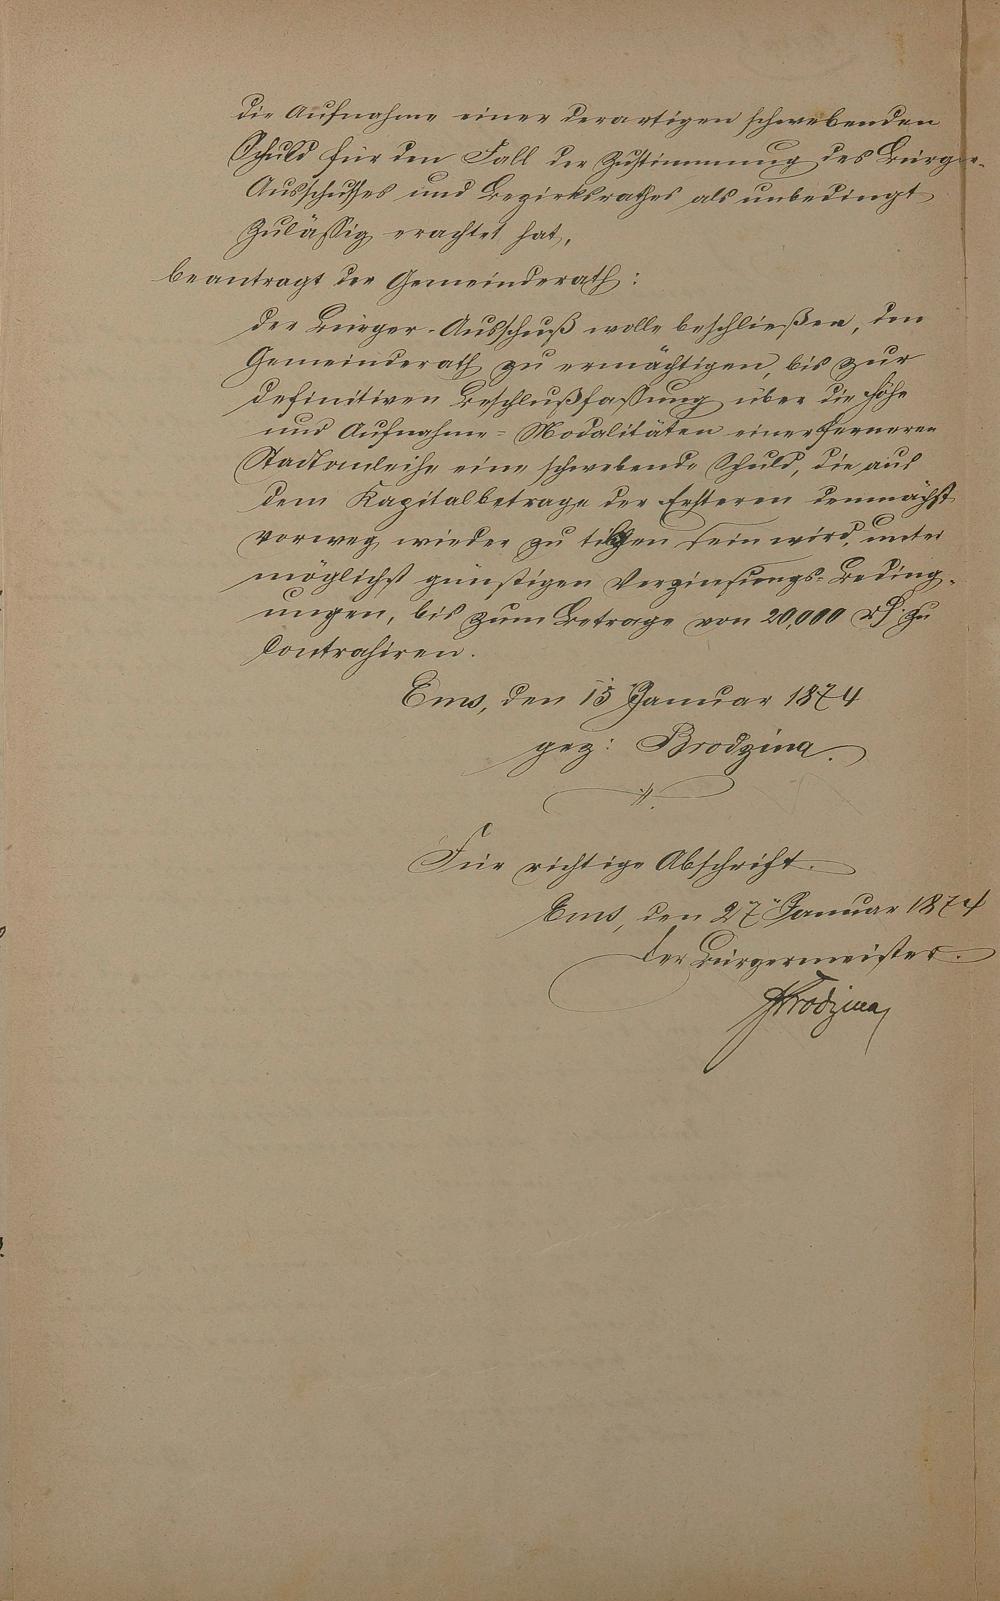 die Aufnahme einer derartigen schwebenden
Schuld für den Fall der Zustimmung des Bürger-
Ausschusses und Bezirksrathes als unbedingt
zuläßig erachtet hat,
beantragt der Gemeinderath:
der Bürger-Ausschuß wolle beschließen, den
Gemeinderath zu ermächtigen, bis zur
definitiven Beschlußfassung über die Höhe
und Aufnahme-Modalitäten einer ferneren
Stadtanleihe eine schwebende Schuld, die aus
dem Kapitalbetrage der Ersteren demnächst
vorweg wieder zu tilgen sein wird, unter
möglichst günstigen Verzinsungs-Beding-
ungen, bis zum Betrage von 20,000 zu
kontrahiren.
Ems, den 15 Januar 1874
gez: Brodzina.
Für richtige Abschrift.
Ems, den 27 Januar 1874
der Bürgermeister.
Brodzina